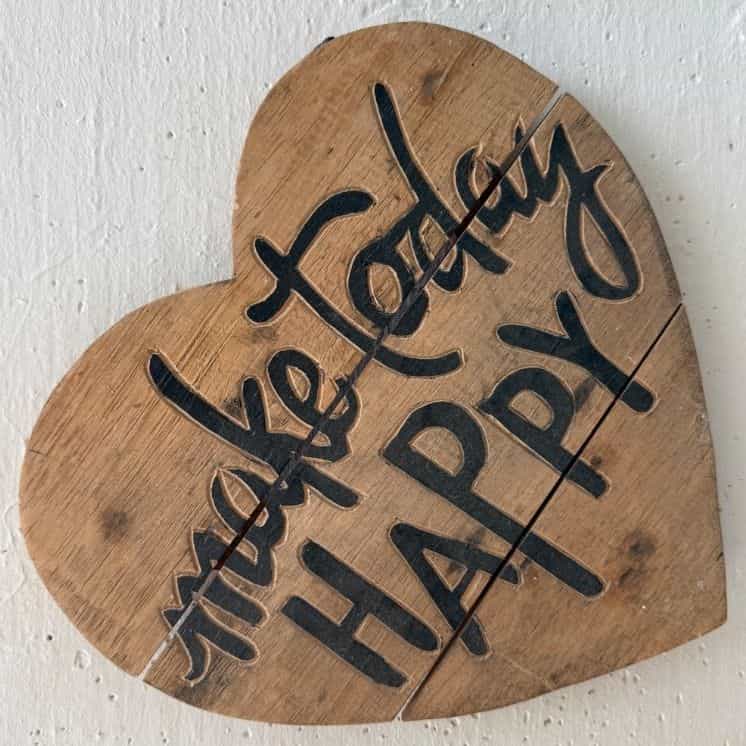 make today
HAPPY